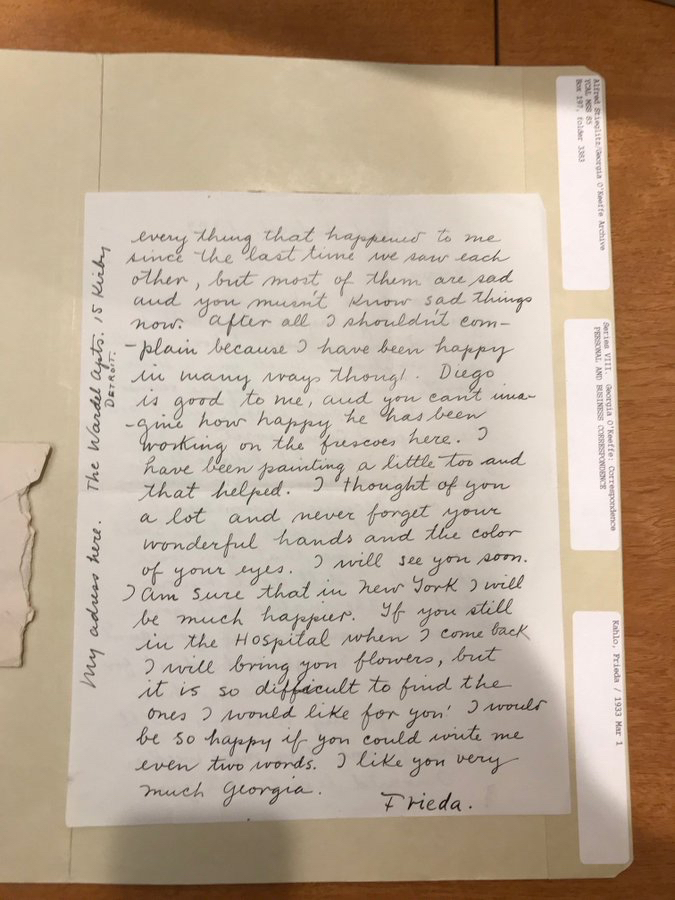 every thing that happened to me
since the last time we saw each
other, but most of them are sad
and you musn't know sad things
now. After all I shouldn't com-
-plain because I have been happy
in many ways though. Diego
is good to me, and you can't ima-
-gine how happy he has been
working on the frescoes here. I
have been painting a little too and
that helped. I thought of you
a lot and never forget your
wonderful hands and the color
of your eyes. I will see you soon.
I am sure that in New York I will
be much happier. If you still
in the Hospital when I come back
I will bring you flowers, but
it is so difficult to find the
ones I would like for you. I would
be so happy if you could write me
even two words. I like you very
much Georgia.
Frieda.
My adress here. The Wardel Apts. 15 Kirby
DETROIT.
Alfred Stieglitz/Georgia O'Keeffe Archive
YCAL MSS 85
Box 197, folder 3383
Series VIII. Georgia O'Keeffe: Correspondence
PERSONAL AND BUSINESS CORRESPONDENCE
Kahlo, Frieda / 1933 Mar 1